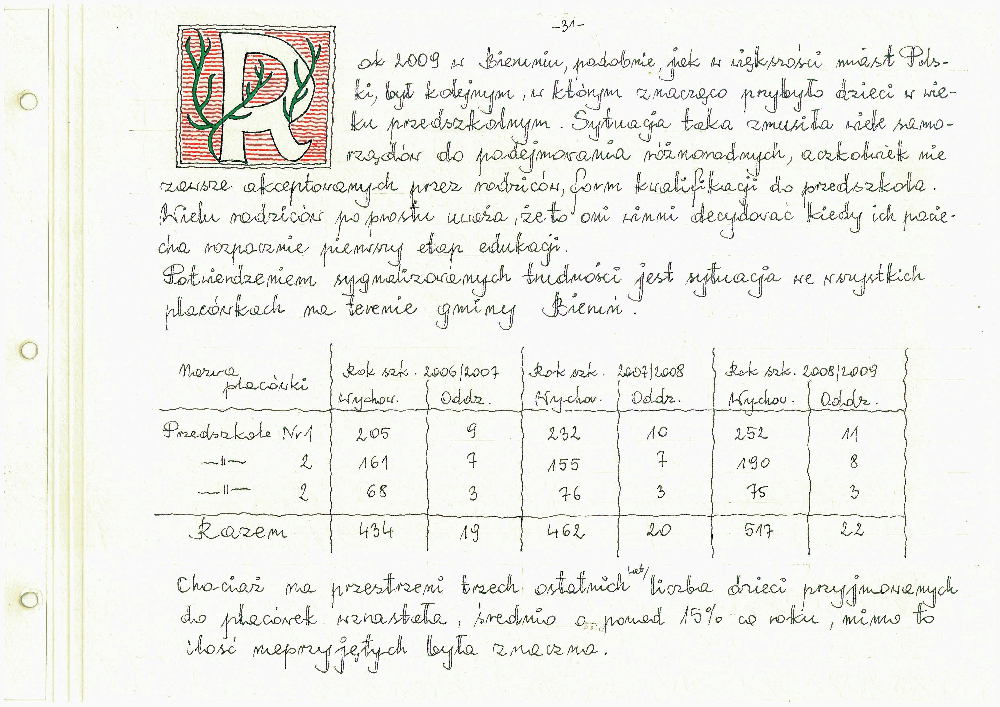 -31-
Rok 2009 w Bieruniu, podobnie jak w większości miast Pols-
ki, był kolejnym, w którym znacząco przybyło dzieci w wie-
ku przedszkolnym. Sytuacja taka zmusiła wiele samo-
rządów do podejmowania różnorodnych, aczkolwiek nie
zawsze akceptowanych przez rodziców, form kwalifikacji do przedszkola.
Wielu rodziców po prostu uważa, że to oni winni decydować kiedy ich pocie-
cha rozpocznie pierwszy etap edukacji.
Potwierdzeniem sygnalizowanych trudności jest sytuacja we wszystkich
placówkach na terenie gminy Bieruń.
Nazwa placówki Rok szk. 2006/2007 Rok szk. 2007/2008 Rok szk. 2008/2009
Wychow. Oddz. Wychow. Oddz. Wychow. Oddz.
Przedszkole Nr 1 205 9 232 10 252 11
—"— 2 161 7 155 7 190 8
—"— 2 68 3 76 3 75 3
Razem 434 19 462 20 517 22
Chociaż na przestrzeni trzech ostatnich lat liczba dzieci przyjmowanych
do placówek wzrastała, średnio o ponad 15% co roku, mimo to
ilość nieprzyjętych była znaczna.